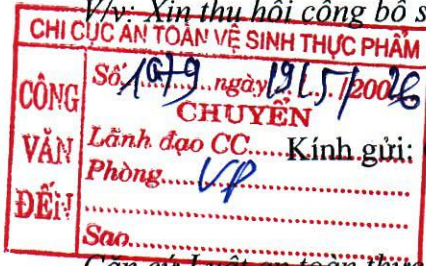 V/v: Xin thu hồi công bố s
CHI CỤC AN TOÀN VỆ SINH THỰC PHẨM
CÔNG VĂN ĐẾN
Số: 1079 ngày 19/5/2026
CHUYỂN
Lãnh đạo CC
Kính gửi:
Phòng VP
Sao
Căn cứ Luật an toàn thực